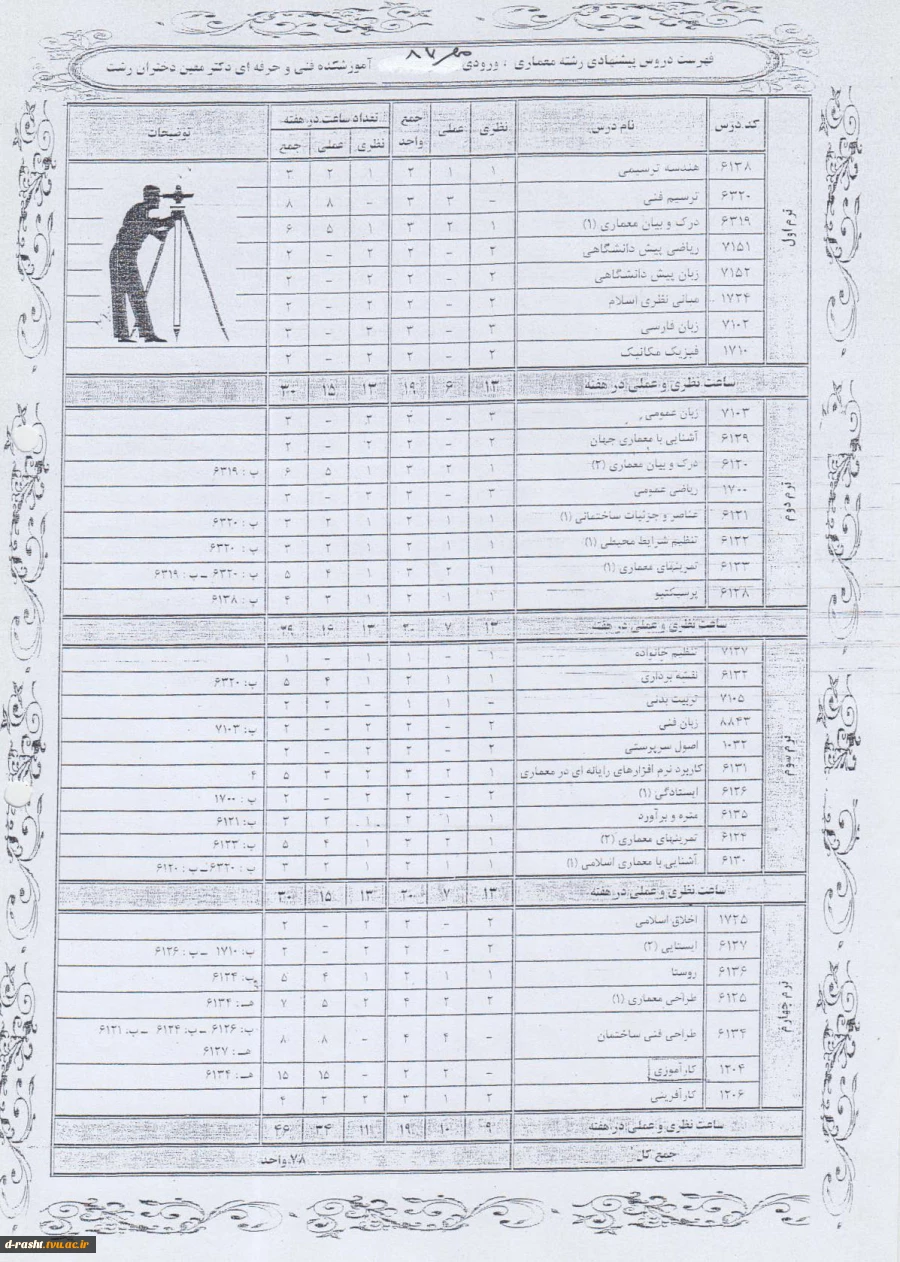 فهرست دروس پیشنهادی رشته معماری ، ورودی مهر ۸۷ آموزشکده فنی و حرفه ای دکتر معین دختران رشت
کد درس نام درس نظری عملی جمع واحد تعداد ساعت در هفته توضیحات
نظری عملی جمع
ترم اول
۶۱۳۸ هندسه ترسیمی ۱ ۱ ۲ ۱ ۲ ۳
۶۳۲۰ ترسیم فنی - ۳ ۳ - ۸ ۸
۶۳۱۹ درک و بیان معماری (۱) ۱ ۲ ۳ ۱ ۵ ۶
۷۱۵۱ ریاضی پیش دانشگاهی ۲ - ۲ ۲ - ۲
۷۱۵۲ زبان پیش دانشگاهی ۲ - ۲ ۲ - ۲
۱۷۲۴ مبانی نظری اسلام ۲ - ۲ ۲ - ۲
۷۱۰۲ زبان فارسی ۳ - ۳ ۳ - ۳
۱۷۱۰ فیزیک مکانیک ۲ - ۲ ۲ - ۲
ساعت نظری و عملی در هفته ۱۳ ۶ ۱۹ ۱۳ ۱۵ ۳۰
ترم دوم
۷۱۰۳ زبان عمومی ۳ - ۳ ۳ - ۳
۶۱۲۹ آشنایی با معماری جهان ۲ - ۲ ۲ - ۲
۶۱۲۰ درک و بیان معماری (۲) ۱ ۲ ۳ ۱ ۵ ۶ پ : ۶۳۱۹
۱۷۰۰ ریاضی عمومی ۳ - ۳ ۳ - ۳
۶۱۲۱ عناصر و جزئیات ساختمانی (۱) ۱ ۱ ۲ ۱ ۲ ۳ پ : ۶۳۲۰
۶۱۲۲ تنظیم شرایط محیطی (۱) ۱ ۱ ۲ ۱ ۲ ۳ پ : ۶۳۲۰
۶۱۲۳ تمرینهای معماری (۱) ۱ ۲ ۳ ۱ ۴ ۵ پ : ۶۳۲۰ ــ پ : ۶۳۱۹
۶۱۲۸ پرسپکتیو ۱ ۱ ۲ ۱ ۳ ۴ پ : ۶۱۳۸
ساعت نظری و عملی در هفته ۱۳ ۷ ۲۰ ۱۳ ۱۶ ۲۹
ترم سوم
۷۱۲۷ تنظیم خانواده ۱ - ۱ ۱ - ۱
۶۱۳۲ نقشه برداری ۱ ۱ ۲ ۱ ۴ ۵ پ: ۶۳۲۰
۷۱۰۵ تربیت بدنی - ۱ ۱ - ۲ ۲
۸۸۴۳ زبان فنی ۲ - ۲ ۲ - ۲ پ: ۷۱۰۳
۱۰۳۲ اصول سرپرستی ۲ - ۲ ۲ - ۲
۶۱۳۱ کاربرد نرم افزارهای رایانه ای در معماری ۱ ۲ ۳ ۲ ۳ ۵ ۴
۶۱۲۶ ایستادگی (۱) ۲ - ۲ ۲ - ۲ پ : ۱۷۰۰
۶۱۳۵ متره و برآورد ۱ ۱ ۲ ۱ ۲ ۳ پ: ۶۱۲۱
۶۱۲۴ تمرینهای معماری (۲) ۱ ۲ ۳ ۱ ۴ ۵ پ: ۶۱۲۳
۶۱۳۰ آشنایی با معماری اسلامی (۱) ۱ ۱ ۲ ۱ ۲ ۳ پ : ۶۳۲۰ــ پ : ۶۱۲۰
ساعت نظری و عملی در هفته ۱۳ ۷ ۲۰ ۱۳ ۱۵ ۳۰
ترم چهارم
۱۷۲۵ اخلاق اسلامی ۲ - ۲ ۲ - ۲
۶۱۲۷ ایستایی (۲) ۲ - ۲ ۲ - ۲ پ: ۱۷۱۰ ــ پ : ۶۱۲۶
۶۱۳۶ روستا ۱ ۱ ۲ ۱ ۴ ۵ پ: ۶۱۲۴
۶۱۲۵ طراحی معماری (۱) ۲ ۲ ۴ ۲ ۵ ۷ هـ : ۶۱۳۴
۶۱۳۴ طراحی فنی ساختمان - ۴ ۴ - ۸ ۸ پ: ۶۱۲۶ ــ پ: ۶۱۲۴ ــ پ: ۶۱۲۱
هـ : ۶۱۲۷
۱۲۰۴ کارآموزی - ۲ ۲ - ۱۵ ۱۵ هـ : ۶۱۳۴
۱۲۰۶ کارآفرینی ۲ ۱ ۳ ۲ ۲ ۴
ساعت نظری و عملی در هفته ۹ ۱۰ ۱۹ ۱۱ ۳۴ ۴۶
جمع کل ۷۸ واحد
d-rasht.tvu.ac.ir